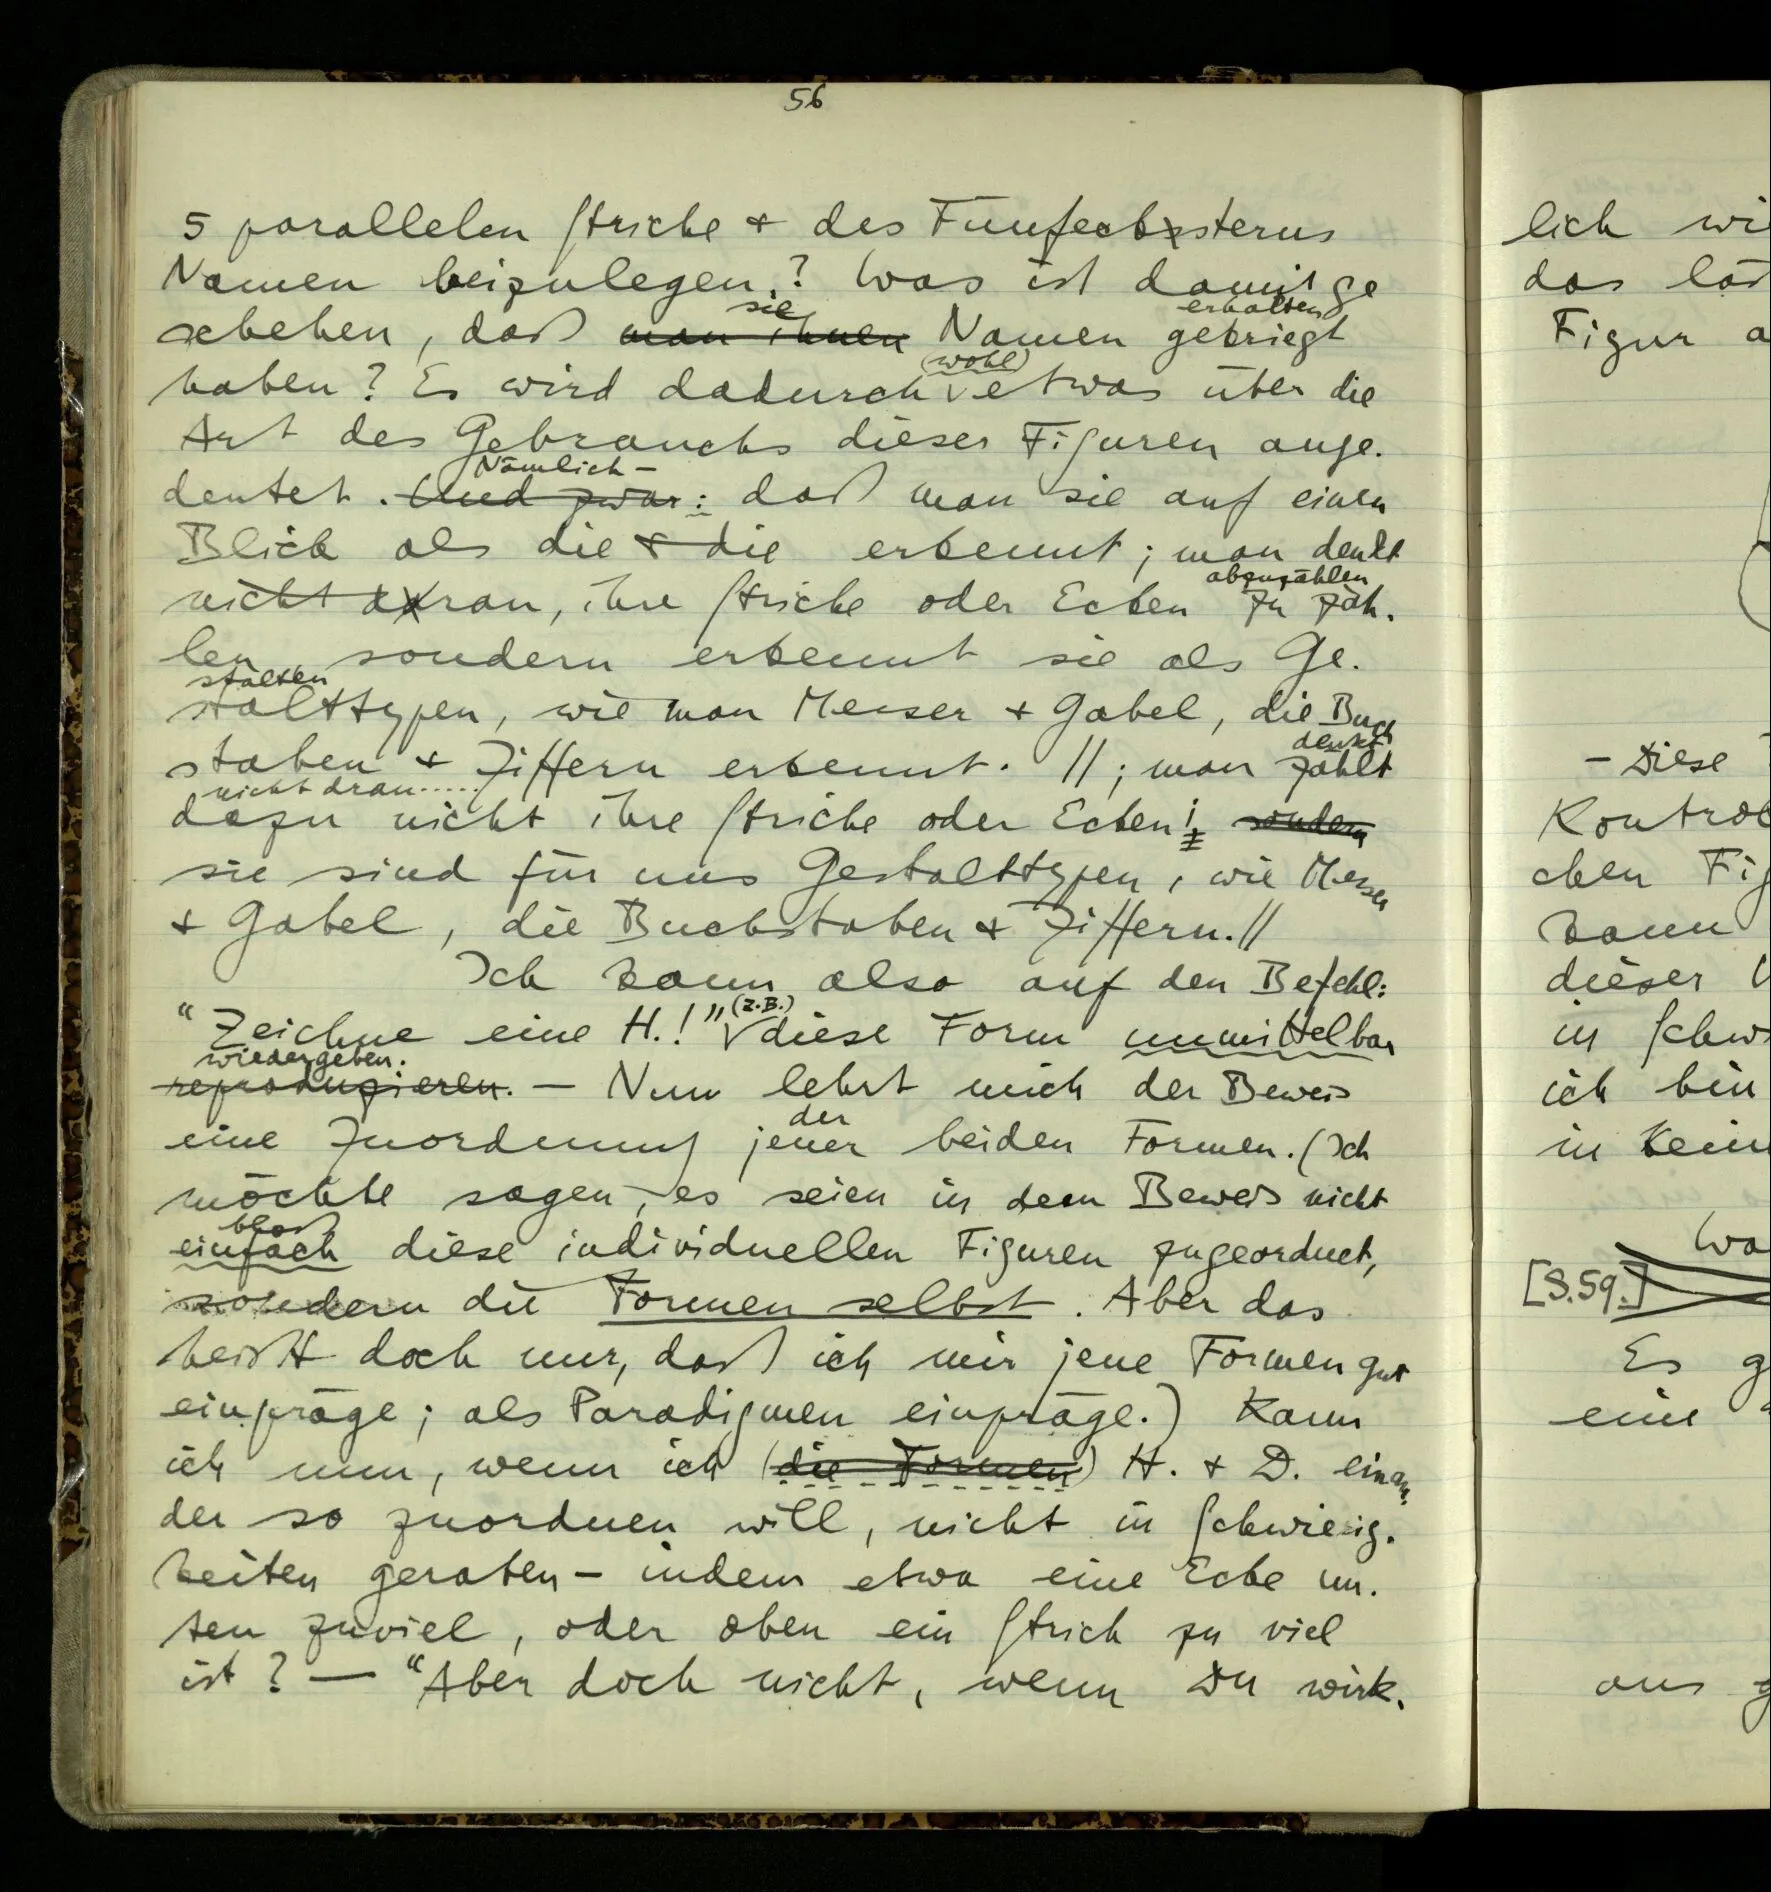 56
5 parallelen Striche & des Fünfecksterns
Namen beizulegen? Was ist damit ge
sie erhalten
schehen, daß man ihnen Namen gekriegt
(wohl)
haben? Es wird dadurch etwas über die
Art des Gebrauchs dieser Figuren ange-
Nämlich –
deutet. Und zwar: daß man sie auf einen
Blick als die & die erkennt; man denkt
abzuzählen
nicht dran, ihre Striche oder Ecken zu zäh-
len sondern erkennt sie als Ge-
stalten
stalttypen, wie man Messer & Gabel, die Buch
denkt
staben & Ziffern erkennt. //; man zählt
nicht dran.....
dazu nicht ihre Striche oder Ecken; sondern
sie sind für uns Gestalttypen, wie Messer
& Gabel, die Buchstaben & Ziffern.//
Ich kann also auf den Befehl:
(z.B.)
“Zeichne eine H.!” diese Form unmittelbar
wiedergeben.
reproduzieren. – Nun lehrt mich der Beweis
der
eine Zuordnung jener beiden Formen. (Ich
möchte sagen, es seien in dem Beweis nicht
bloß
einfach diese individuellen Figuren zugeordnet,
sondern die Formen selbst. Aber das
heißt doch nur, daß ich mir jene Formen gut
einpräge; als Paradigmen einpräge.) Kann
ich nun, wenn ich (die Formen) H. & D. einan-
der so zuordnen will, nicht in Schwierig-
keiten geraten – indem etwa eine Ecke un-
ten zuviel, oder oben ein Strich zu viel
ist? — “Aber doch nicht, wenn Du wirk-
lich wi
das läs
Figur a
– Diese
Kontrol
chen Fig
kann
dieser
in Schw
ich bin
in kein
[S.59.]
Es g
eine
aus g